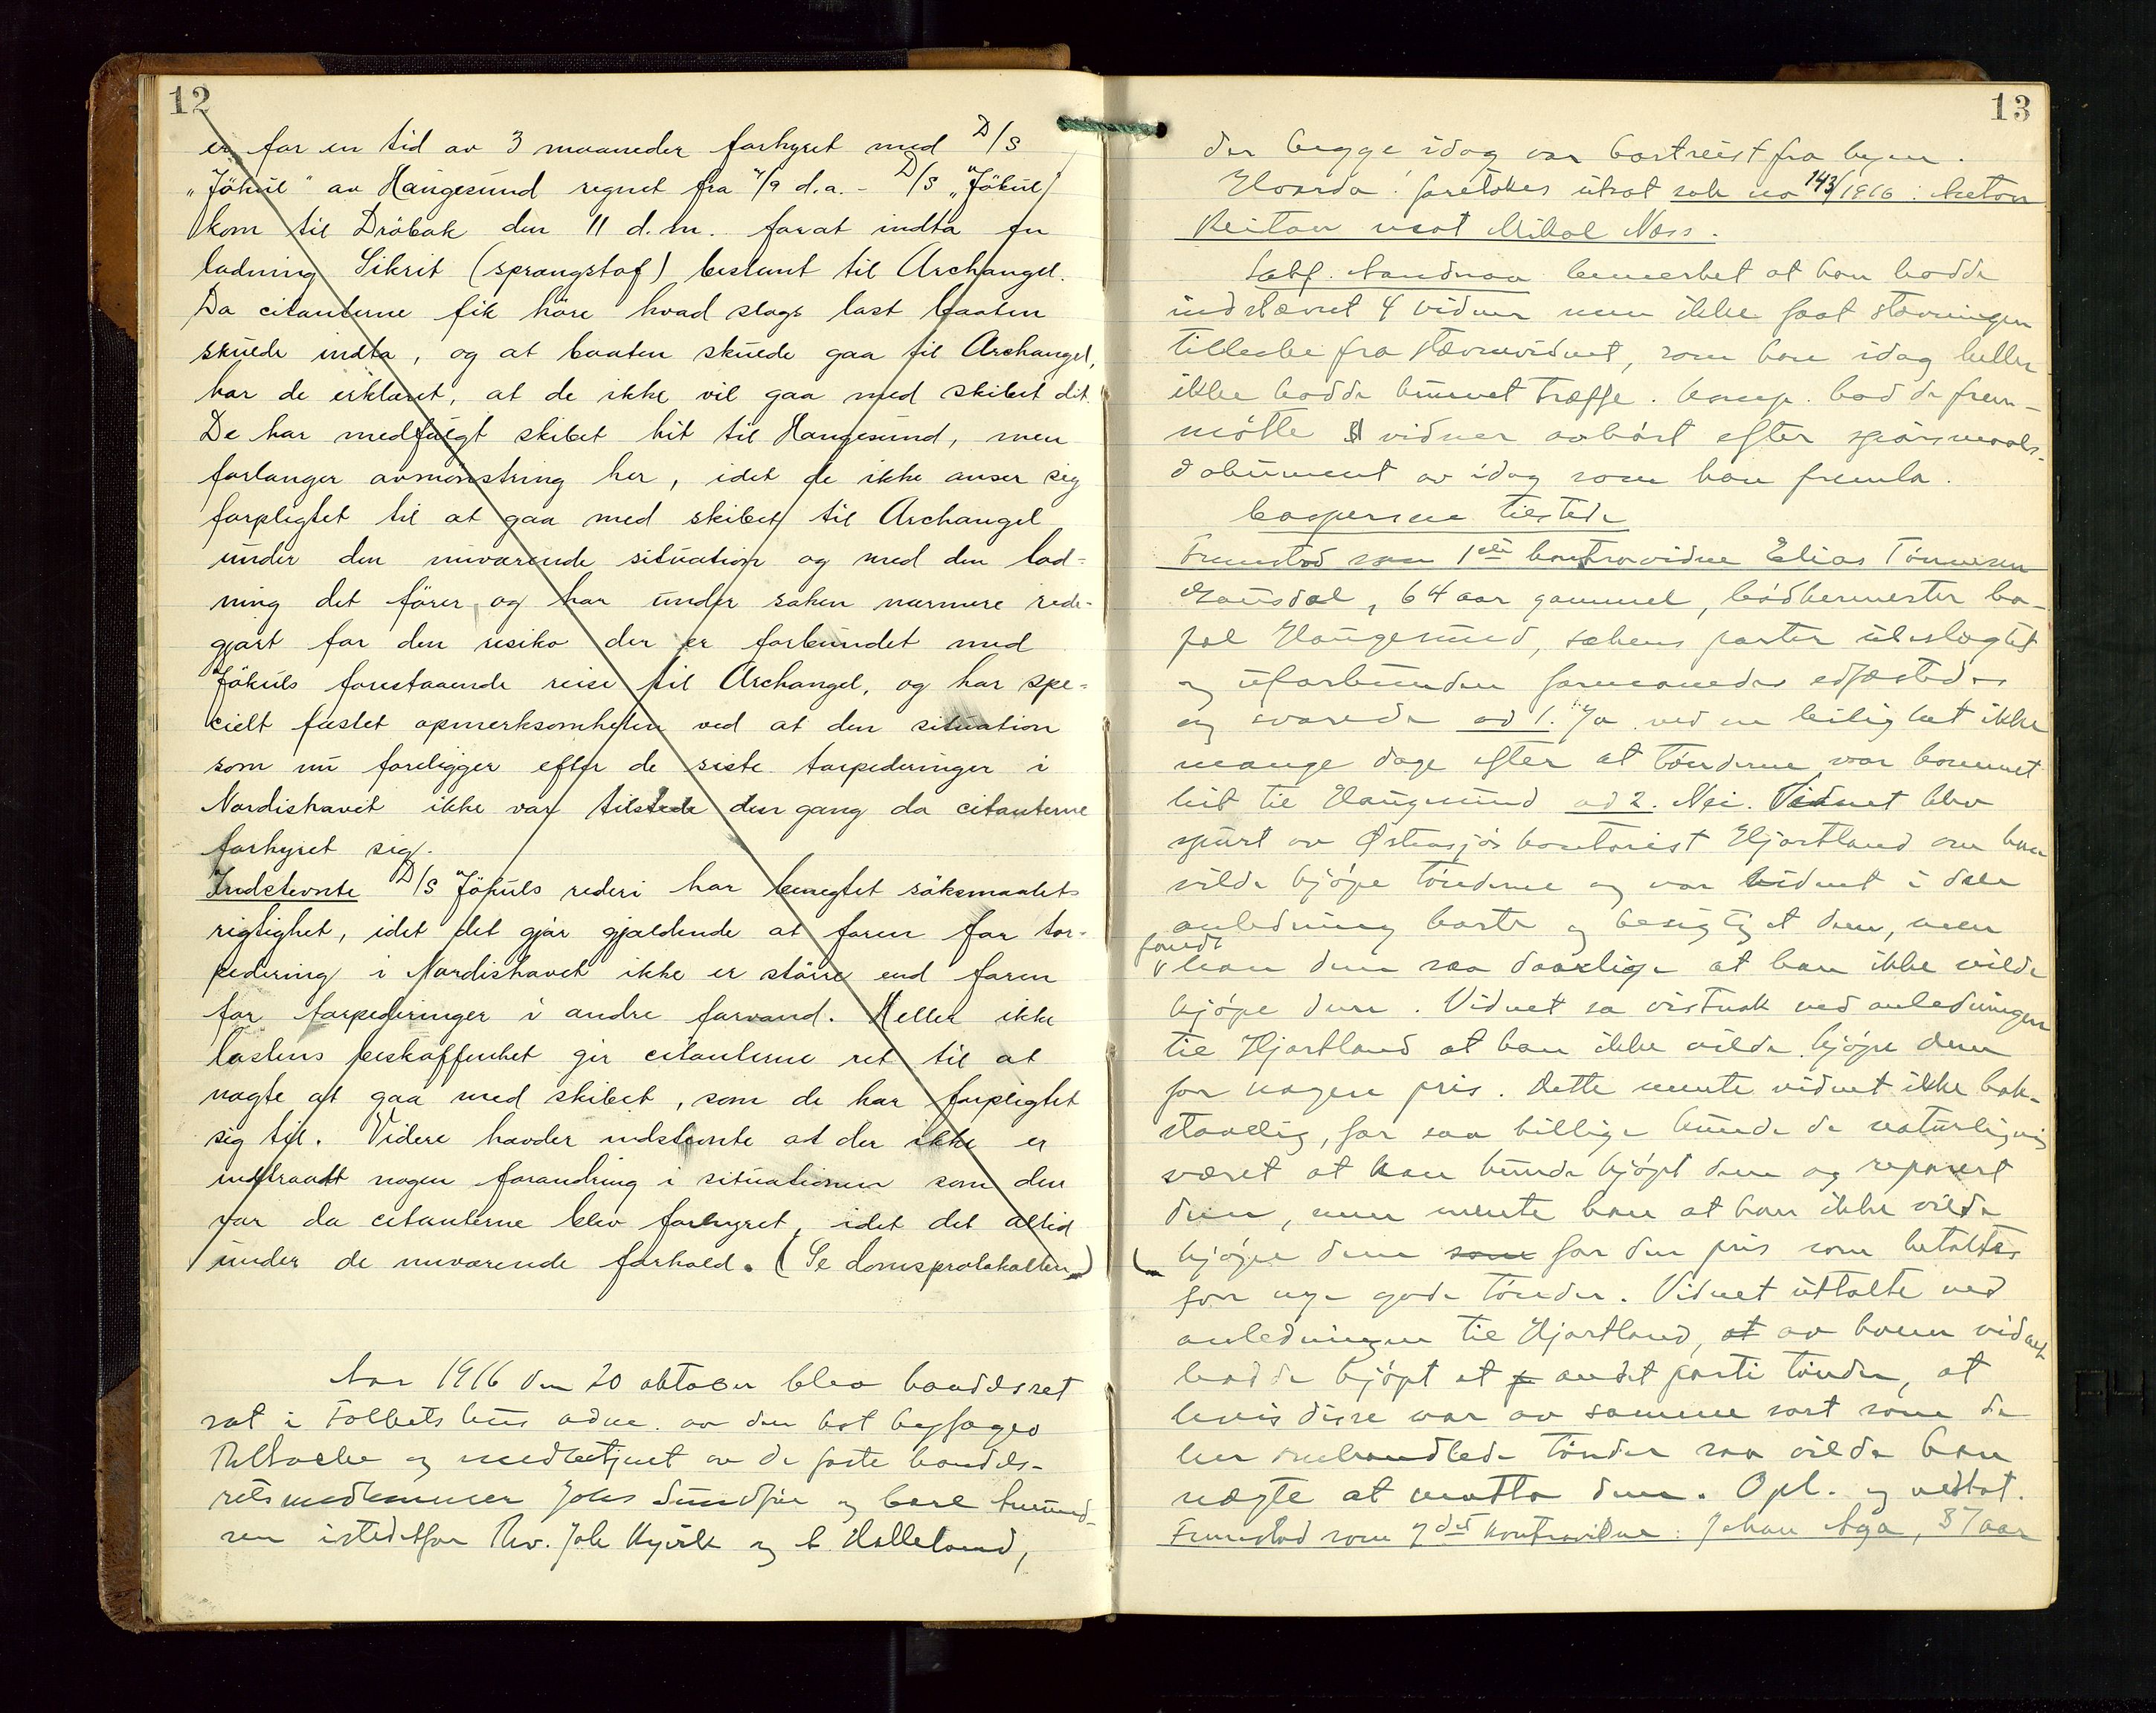 12
er for en tid av 3 maaneder forhyret med D/S
"Jökul" av Haugesund regnet fra 4/9 d.a. - D/S "Jökul"
kom til Dröbak den 11 d.m. forat indta en
ladning Sikrit (sprængstof) bestemt til Archangel.
Da citanterne fik höre hvad slags last baaten
skulde indta, og at baaten skulde gaa til Archangel,
har de erklæret, at de ikke vil gaa med skibet dit.
De har medfulgt skibet hit til Haugesund, men
forlanger avmönstring her, idet de ikke anser sig
forpligtet til at gaa med skibet til Archangel
under den nuværende situation og med den lad-
ning det förer, og har under saken nærmere rede-
gjort for den risiko der er forbundet med
Jökuls forestaaende reise til Archangel, og har spe-
cielt fæstet opmerksomheten ved at den situation
som nu foreligger efter de siste torpederinger i
Nordishavet ikke var tilstede den gang da citanterne
forhyret sig.
Indstevnte D/S Jökuls rederi har benegtet söksmaalets
rigtighet, idet det gjör gjældende at faren for tor-
pedering i Nordishavet ikke er större end faren
for torpederinger i andre farvand. Heller ikke
lastens beskaffenhet gir citanterne ret til at
nægte at gaa med skibet, som de har forpligtet
sig til. Videre hævder indstevnte at der ikke er
indtraadt nogen forandring i situationen som den
var da citanterne blev forhyret, idet det altid
under de nuværende forhold. (Se domsprotokollen)
Aar 1916 den 20 oktober blev handelsret
sat i Folkets hus adm. av den kst byfoged
og medbetjent av de faste handels-
retsmedlemmer Johs Sundför og Carl Amund-
sen istedetfor Thv. Joh Kyvik og C. Helleland,
13
der begge idag var bortreist fra byen.
Hvorda: foretokes utsat sak no 143/1916: Anton
Reitan mot Mikal Næss.
Sakf. bemerket at han hadde
indstævnet 4 vidner men ikke faat stævningen
tilbake fra stævnevidnet, som han idag heller
ikke hadde kunnet træffe. Komp. bad de frem-
mötte vidner avhört efter spörsmaals-
dokument av idag som han fremla.
Caspersen tilstede
Fremstod som 1ste kontravidne Elias Tönnesen
Gausdal, 64 aar gammel, bödkermester bo-
pæl Haugesund, sakens parter ubeslægtet
og uforbunden formanedes edfæstedes
og svarede ad 1. Ja ved en leilighet ikke
mange dage efter at tönderne var kommet
hit til Haugesund ad 2. Nei. Vidnet blev
spurt av Østensjös kontorist Hjortland om han
vilde kjöpe tönderne og var vidnet i den
anledning borte og besigtiget dem, men
fandt
han dem saa daarlige at han ikke vilde
kjöpe dem. Vidnet sa vistnok ved anledningen
til Hjortland at han ikke vilde kjöpe dem
for nogen pris. Dette mente vidnet ikke bok-
stavelig, for saa billige kunde de naturligvis
været at han kunde kjöpt dem og reparert
dem, men mente han at han ikke vilde
kjöpe dem som for den pris som betaltes
for nye gode tönder. Vidnet uttalte ved
anledningen til Hjortland, at av ham vidnet
hadde kjöpt et p andet parti tönder, at
hvis disse var av samme sort som de
her omhandlede tönder saa vilde han
nægte at motta dem. Opl. og vedtat.
Fremstod som 2det kontravidne: Johan Aga, 37 aar